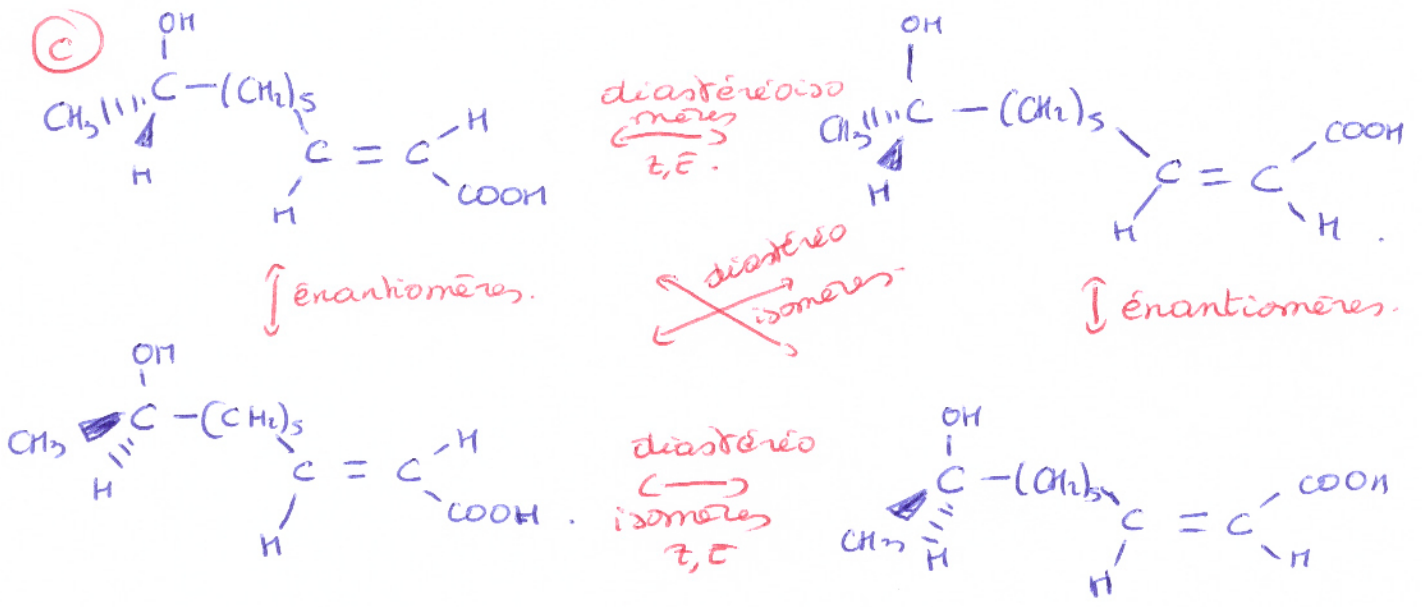 C
OH
CH₃ C – (CH₂)₅
H
C = C
H
H
COOH
diastéréoiso
mères
Z, E.
OH
CH₃ C – (CH₂)₅
H
C = C
COOH
H
H .
énantiomères.
diastéréo
isomères.
énantiomères.
OH
CH₃ C – (CH₂)₅
H
C = C
H
H
COOH .
diastéréo
isomères
Z, E
OH
C – (CH₂)₅
CH₃ H
C = C
COOH
H
H